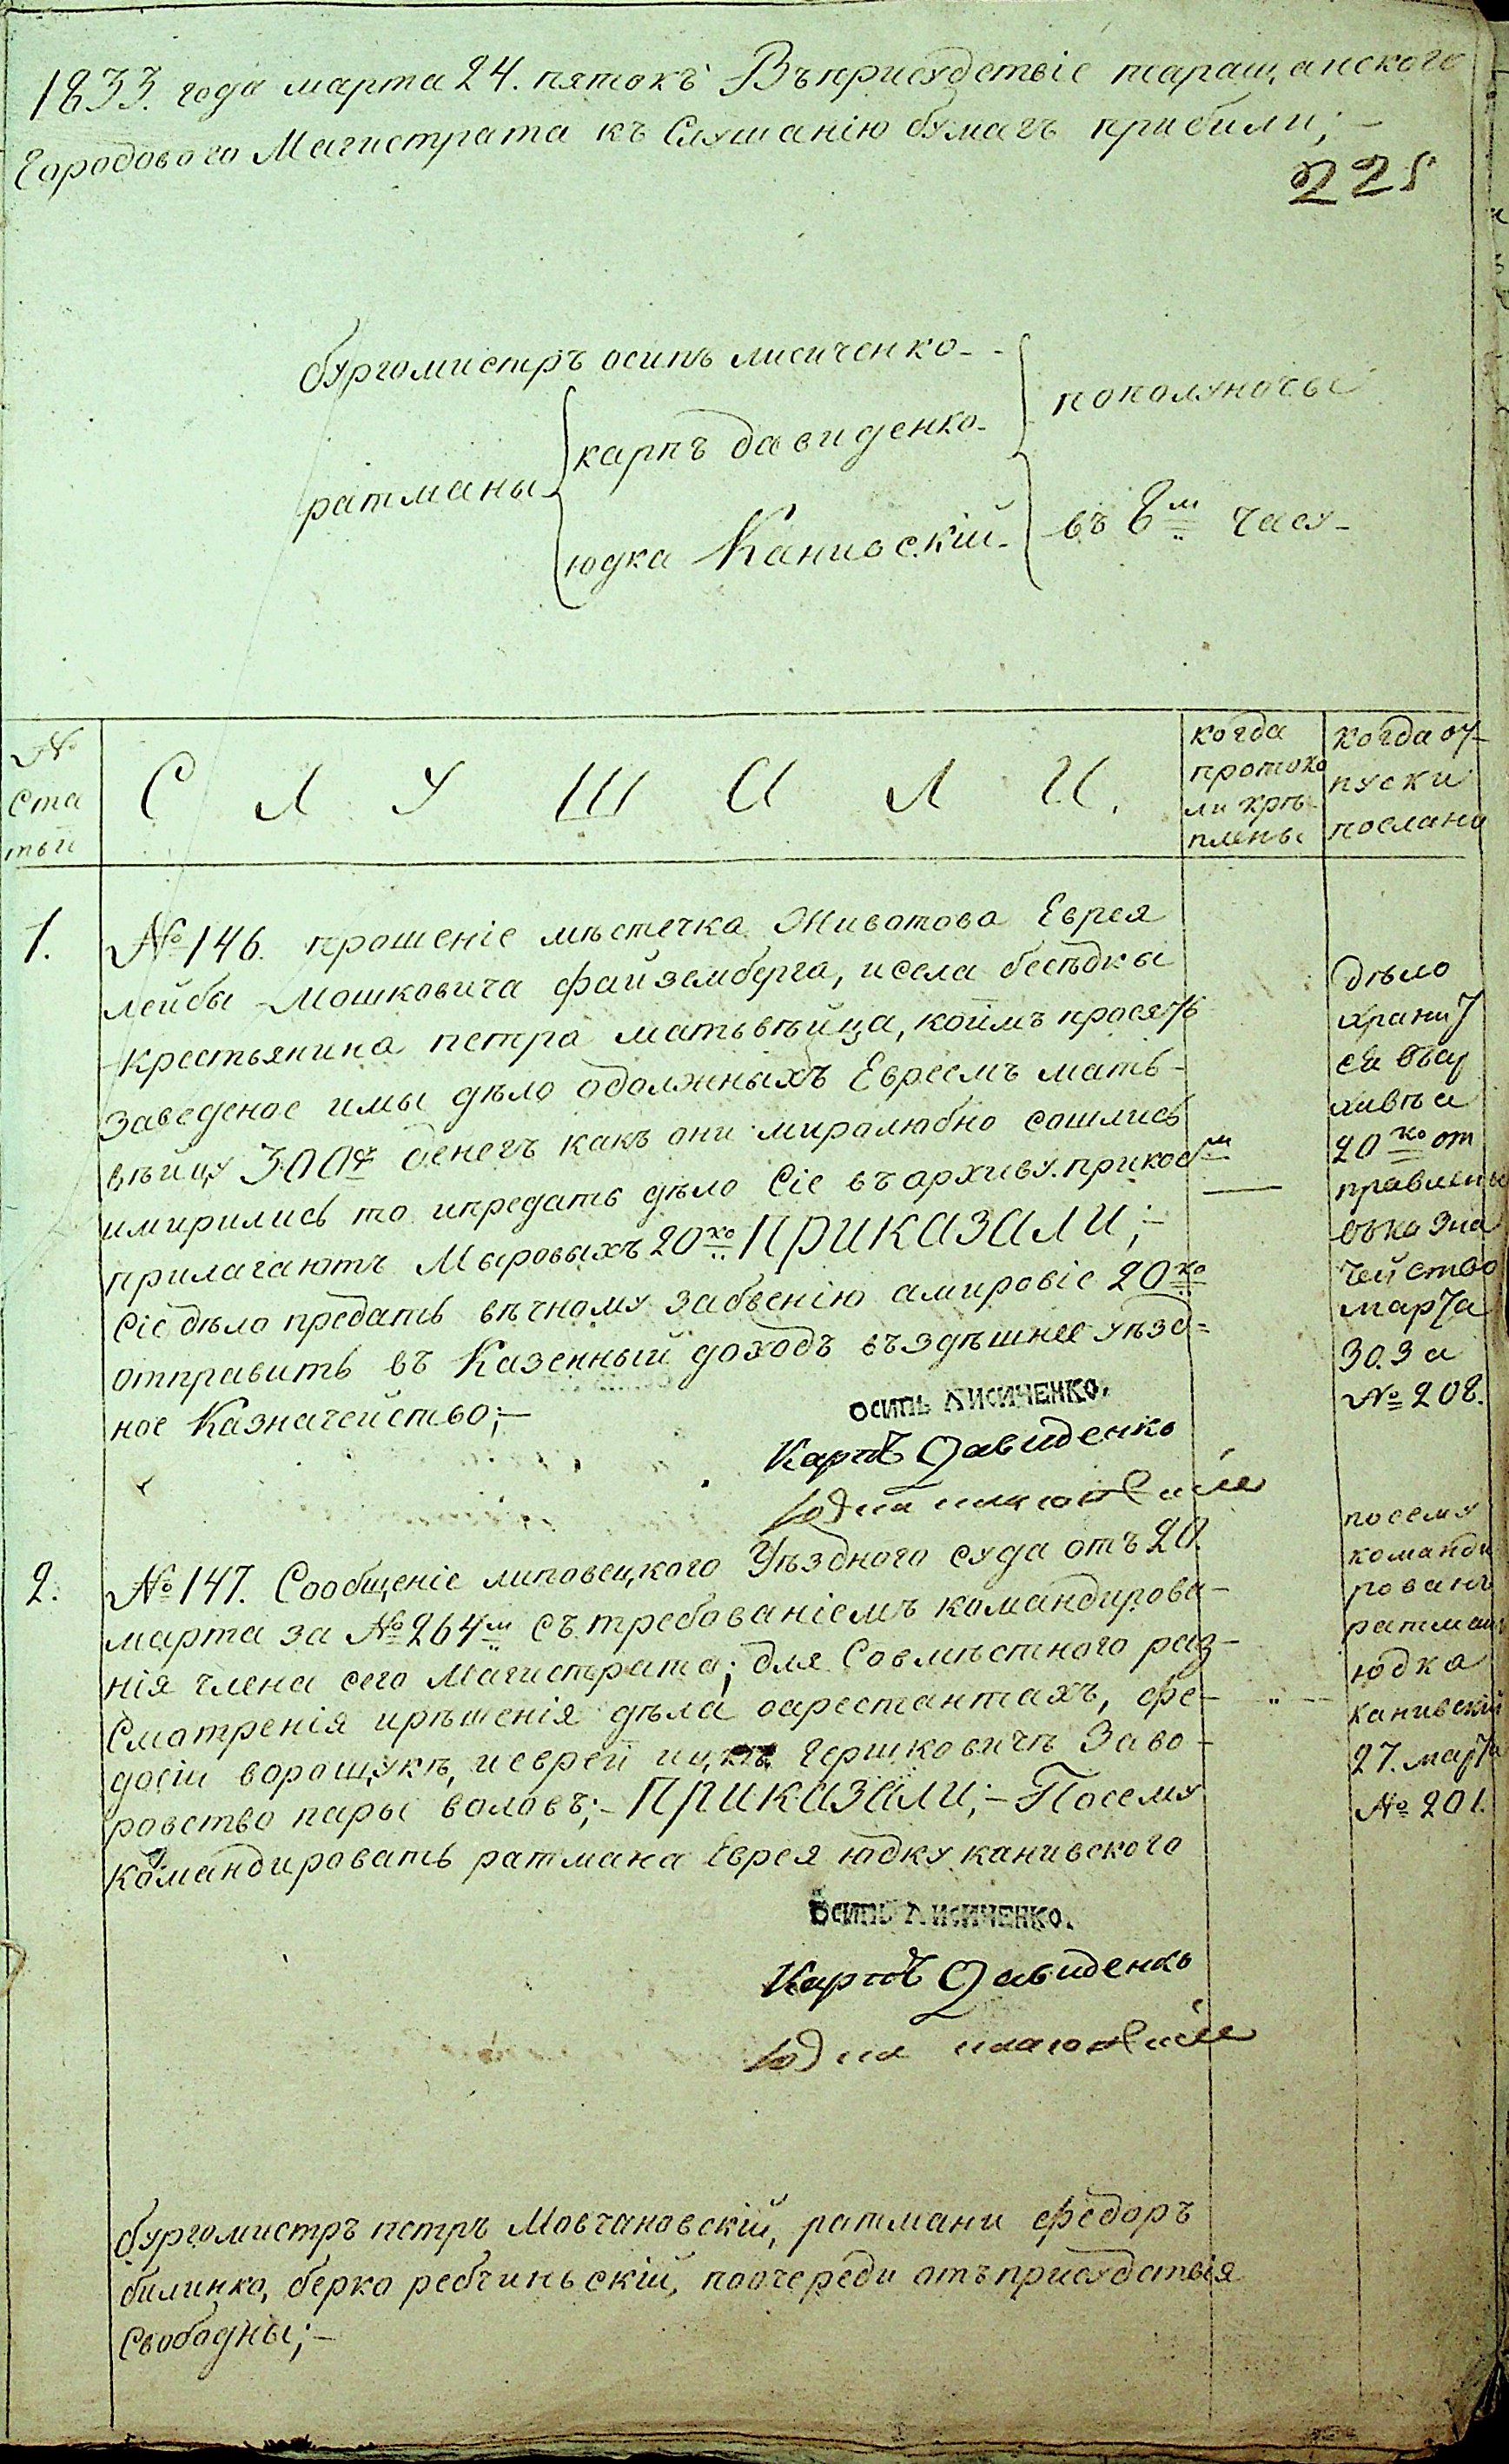 1833. года марта 24. пятокъ Въ присудствіе таращанского
Городового Магистрата къ Слушанію бумагъ прибили;—
225
бургомистръ осипъ лисиченко
ратманы
карпъ давиденко
юдка Канивскій
пополуночы
въ 8м часу
№ Ста тьи
С Л У Ш А Л И.
когда протоко ли крѣ плены
когда оу- пуски послани
1.
№ 146. прошеніе мѣстечка Животова Еврея
лейбы Мошковича файземберга, и села бесѣдкы
Крестьянина петра матьвѣйца, коимъ просятъ
заведеное имы дѣло одолжныхъ Евреемъ мать-
вѣйцу 300 денегъ какъ они миролюбно сошлись
имирились то ипредать дѣло Сіе въ архиву. прикое м
прилагаютъ Мыровыхъ 20 ко ПРИКАЗАЛИ;—
Сіе дѣло предать вѣчному забвенію амировіе 20 ко
отправить въ Казенный доходъ въздѣшнее уѣзд=
ное Казначейство;—
осипъ лисиченко.
Карпъ Давиденко
дѣло
хранит
ся въар
хивѣ а
20 ко от
правлены
въказна
чейство
марта
30. за
№ 208.
2.
№ 147. Сообщеніе липовецкого Уѣздного суда отъ 20.
марта за № 264м съ требованіемъ командирова-
нія члена сего Магистрата; для Совмѣстного раз-
смотренія ирѣшенія дѣла оарестантахъ, фе-
досіи ворощукѣ, иеврей ицкѣ гершковичѣ Заво-
ровство пары воловъ;- ПРИКАЗАЛИ;- Посему
командировать ратмана Еврея юдку канивского
осипъ лисиченко.
Карпъ Давиденко
посему
команди
рованъ
ратманъ
юдка
канивскій
27. марта
№ 201.
бургомистръ петръ Мовчановскій, ратмани федоръ
билинко, берко ребчиньскій, поочереди отъ присудствія
Свободны;—